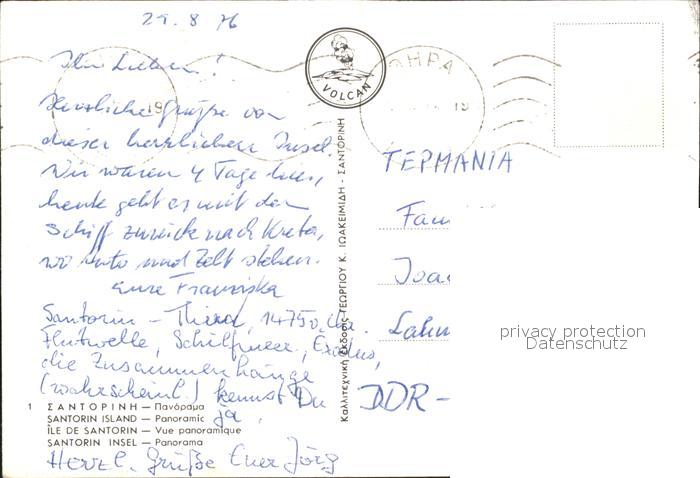 29.8.76
Ihr Lieben!
Herzliche Grüße von
dieser herrlichen Insel.
Wir waren 4 Tage hier,
heute geht es mit dem
Schiff zurück nach Kreta,
wo Auto und Zelt stehen.
Eure Franziska
Santorin – Thira, 1475 v. Chr.
Flutwelle, Schilfmeer, Exodus,
die Zusammenhänge
(wahrscheinl.) kennst Du
ja.
Herzl. Grüße Euer Jörg
1 ΣΑΝΤΟΡΙΝΗ — Πανόραμα
SANTORIN ISLAND — Panoramic
ÎLE DE SANTORIN — Vue panoramique
SANTORIN INSEL — Panorama
VOLCAN
Καλλιτεχνική Έκδοσις ΓΕΩΡΓΙΟΥ Κ. ΙΩΑΚΕΙΜΙΔΗ - ΣΑΝΤΟΡΙΝΗ
19
ΘΗΡΑ
19
ΓΕΡΜΑΝΙΑ
Fam
Joa
DDR –
privacy protection
Datenschutz